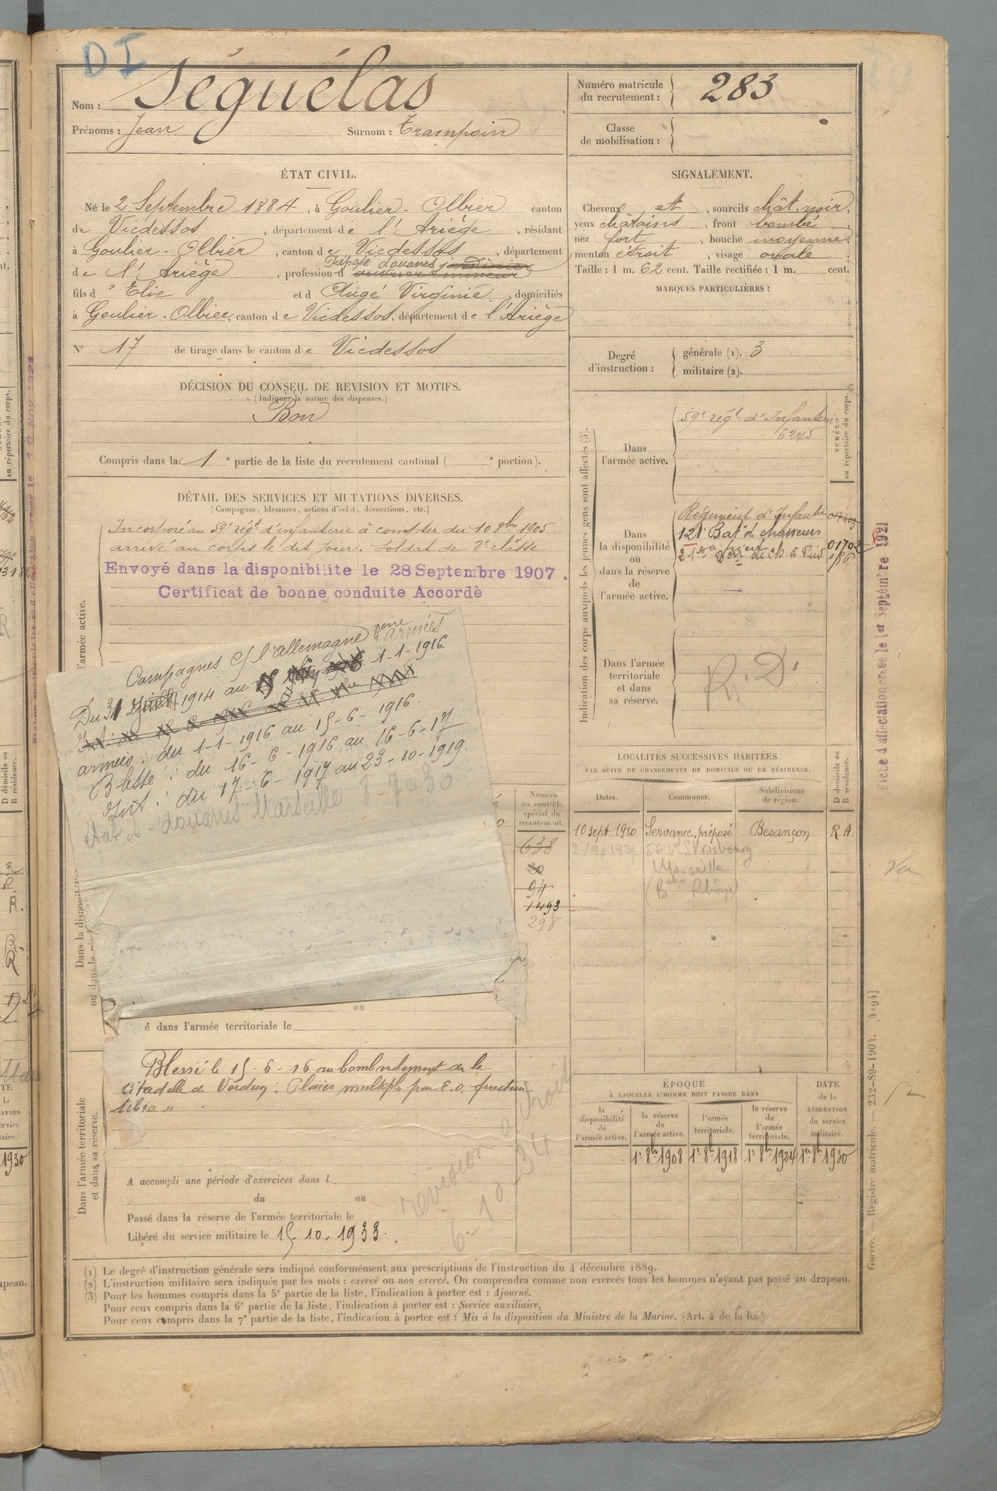 DI
Nom : Séguélas
Prénoms : Jean Surnom : Trampoin
Numéro matricule du recrutement : 283
Classe de mobilisation :
ÉTAT CIVIL.
Né le 2 Septembre 1884, à Goulier-Olbier canton
de Vicdessos, département de l'Ariège, résidant
à Goulier-Olbier, canton de Vicdessos, département
de l'Ariège, profession d Préposé douanes jardinier
ouvrier mineur
fils d' Elie et d Augé Virginie, domiciliés
à Goulier-Olbier, canton de Vicdessos, département de l'Ariège
N° 17 de tirage dans le canton de Vicdessos
SIGNALEMENT.
Cheveux et, sourcils chât. noir,
yeux châtains, front bombé
nez fort, bouche moyenne,
menton étroit, visage ovale
Taille : 1 m. 62 cent. Taille rectifiée : 1 m. cent.
MARQUES PARTICULIÈRES :
Degré d'instruction : générale (1). 3
militaire (2).
DÉCISION DU CONSEIL DE REVISION ET MOTIFS.
(Indiquer la nature des dispenses.)
Bon
Compris dans la 1e partie de la liste du recrutement cantonal ( e portion).
DÉTAIL DES SERVICES ET MUTATIONS DIVERSES.
(Campagnes, blessures, actions d'éclat, décorations, etc.)
Incorporé au 59e régt d'infanterie à compter du 10 8bre 1905
arrivé au corps le dit jour. Soldat de 2e classe
Envoyé dans la disponibilité le 28 Septembre 1907.
Certificat de bonne conduite Accordé
Campagnes c/ l'allemagne zone armées
Du 31 1914 au 1-1-1916
armées : du 1-1-1916 au 15-6-1916.
du 16-6-1916 au 16-6-17
Int : du 17-6-1917 au 23-10-1919.
douanes Marseille 8-7-30
Indication des corps auxquels les jeunes gens sont affectés (3).
NUMÉRO au répertoire du corps.
Dans l'armée active.
59e régt d'Infanterie
6245
Dans la disponibilité ou dans la réserve de l'armée active.
Régiment d'Infanterie
121 Bat de chasseurs
Dans l'armée territoriale et dans sa réserve.
R.D.
Fiche d'affectation créée le 1er Septembre 1921
LOCALITÉS SUCCESSIVES HABITÉES
PAR SUITE DE CHANGEMENTS DE DOMICILE OU DE RÉSIDENCE.
D domicile ou R résidence.
Dates. Communes. Subdivisions de région.
10 sept. 1910 Servance, préposé Besançon R A
Strasbourg
Marseille
Numéro au contrôle spécial du recrutement.
638
80
94
1493
298
l'armée active.
é dans l'armée territoriale le
Dans l'armée territoriale et dans sa réserve.
Blessé le 15-6-16 au bombardement de la
citadelle de Verdun. Plaies multiples par E.O. fracture
tibia
A accompli une période d'exercices dans l
du au
Passé dans la réserve de l'armée territoriale le
Libéré du service militaire le 15.10.1933.
ÉPOQUE
À LAQUELLE L'HOMME DOIT PASSER DANS
la disponibilité de l'armée active.
la réserve de l'armée active.
l'armée territoriale.
la réserve de l'armée territoriale.
DATE de la LIBÉRATION du service militaire.
1er 8bre 1908 1er 8bre 1918 1er 8bre 1924 1er 8bre 1930
(1) Le degré d'instruction générale sera indiqué conformément aux prescriptions de l'instruction du 4 décembre 1889.
(2) L'instruction militaire sera indiquée par les mots : exercé ou non exercé. On comprendra comme non exercés tous les hommes n'ayant pas passé au drapeau.
(3) Pour les hommes compris dans la 5e partie de la liste, l'indication à porter est : Ajourné.
Pour ceux compris dans la 6e partie de la liste, l'indication à porter est : Service auxiliaire.
Pour ceux compris dans la 7e partie de la liste, l'indication à porter est : Mis à la disposition du Ministre de la Marine. (Art. 4 de la loi.)
Guerre. Registre matricule. 232-89-1904. [4194]